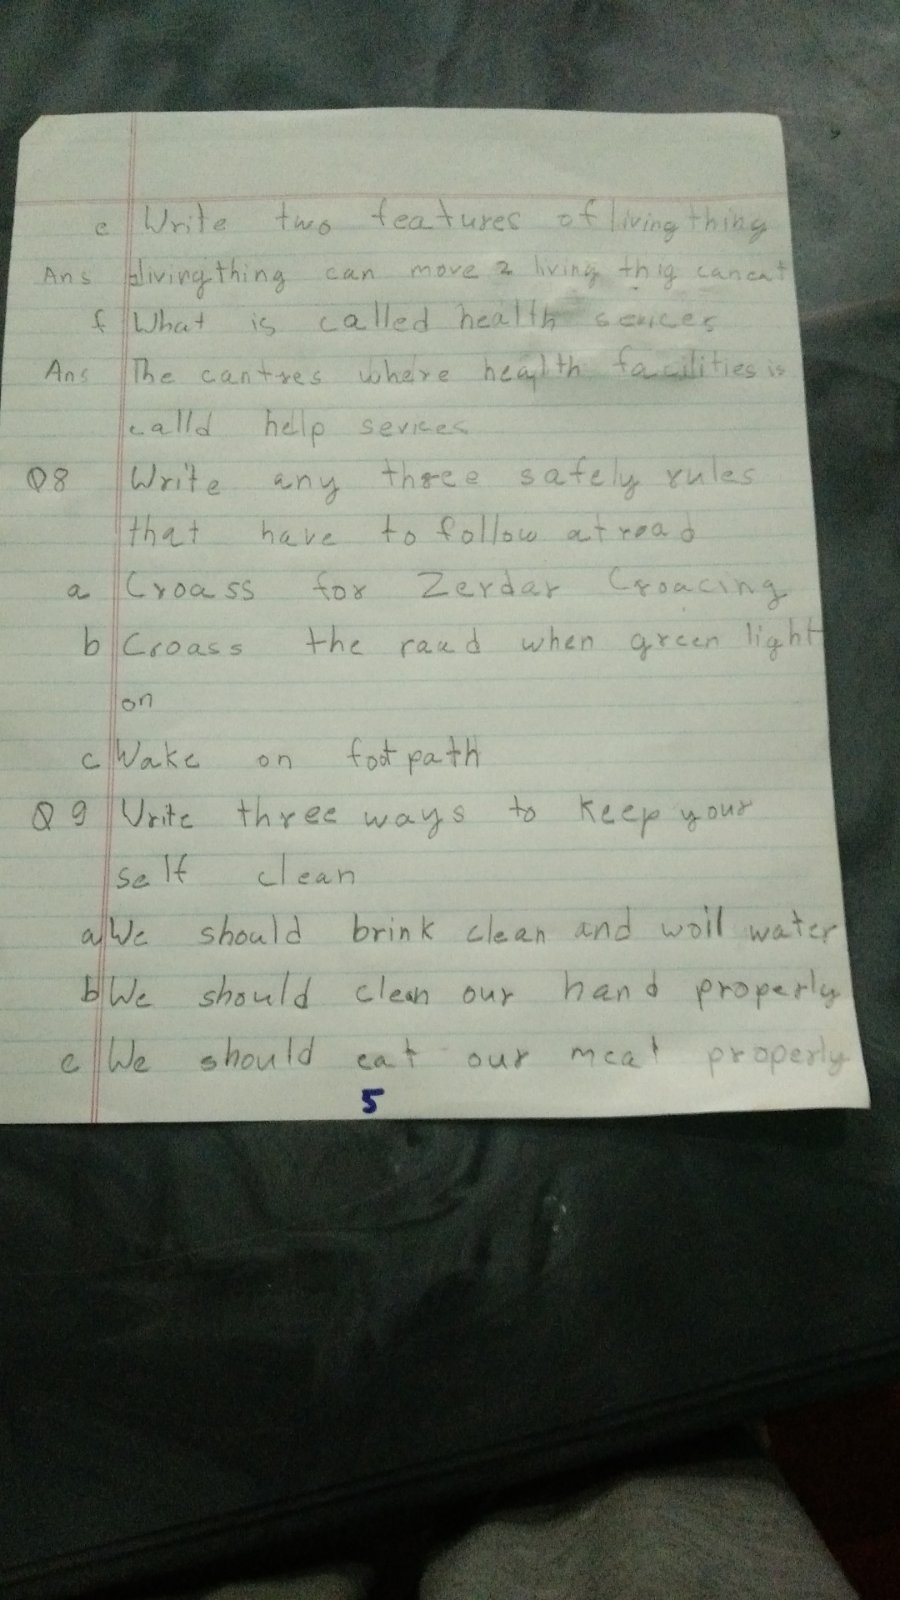 e Write two features of living thing
Ans 1 living thing can move 2 living thig can eat
f What is called health sevices
Ans The cantres where health facilities is
calld help sevices
Q8 Write any three safely rules
that have to follow at road
a Croass for Zerdar Croacing
b Croass the raud when green light
on
c Wake on foot path
Q 9 Write three ways to keep your
self clean
a We should brink clean and woil water
b We should clean our hand properly
c We should eat our meat properly
5